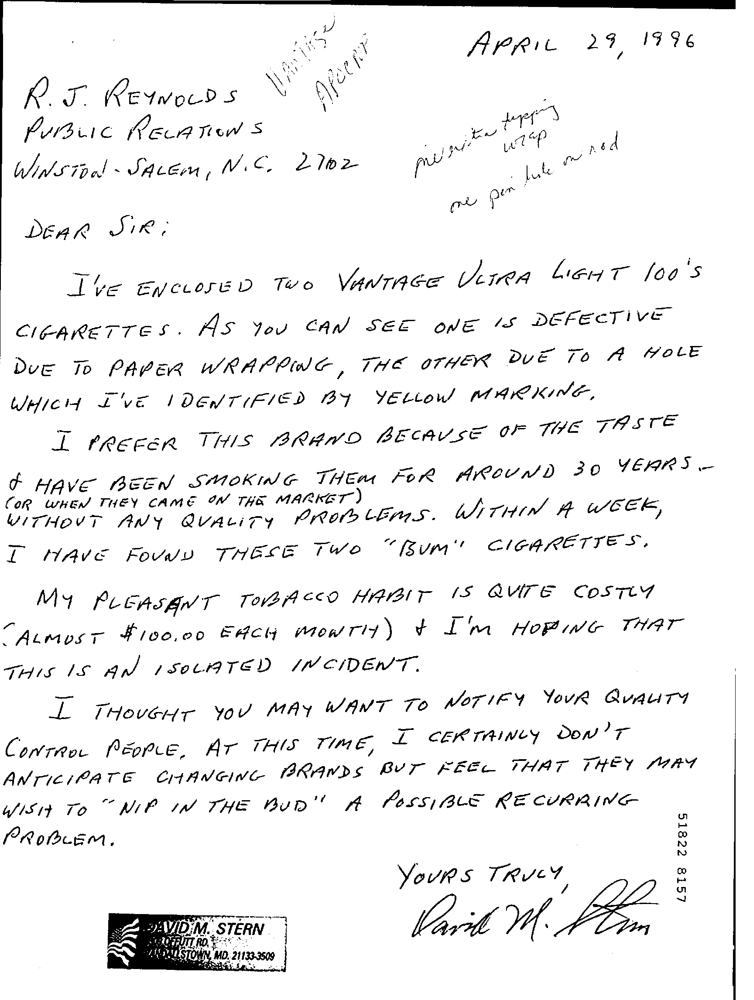 APRIL 29, 1996
VANTAGE
R. J. REYNOLDS
PUBLIC RELATIONS
WINSTON-SALEM, N.C. 27102
tipping
wrap
one pin hole on rod
DEAR SIR:
I'VE ENCLOSED TWO VANTAGE ULTRA LIGHT 100'S
CIGARETTES. AS YOU CAN SEE ONE IS DEFECTIVE
DUE TO PAPER WRAPPING, THE OTHER DUE TO A HOLE
WHICH I'VE IDENTIFIED BY YELLOW MARKING.
I PREFER THIS BRAND BECAUSE OF THE TASTE
& HAVE BEEN SMOKING THEM FOR AROUND 30 YEARS -
(OR WHEN THEY CAME ON THE MARKET)
WITHOUT ANY QUALITY PROBLEMS. WITHIN A WEEK,
I HAVE FOUND THESE TWO "BUM" CIGARETTES.
MY PLEASANT TOBACCO HABIT IS QUITE COSTLY
(ALMOST $100.00 EACH MONTH) & I'M HOPING THAT
THIS IS AN ISOLATED INCIDENT.
I THOUGHT YOU MAY WANT TO NOTIFY YOUR QUALITY
CONTROL PEOPLE. AT THIS TIME, I CERTAINLY DON'T
ANTICIPATE CHANGING BRANDS BUT FEEL THAT THEY MAY
WISH TO "NIP IN THE BUD" A POSSIBLE RECURRING
PROBLEM.
51822 8157
YOURS TRULY,
David M. Stern
DAVID M. STERN
RD.
MD. 21133-3509